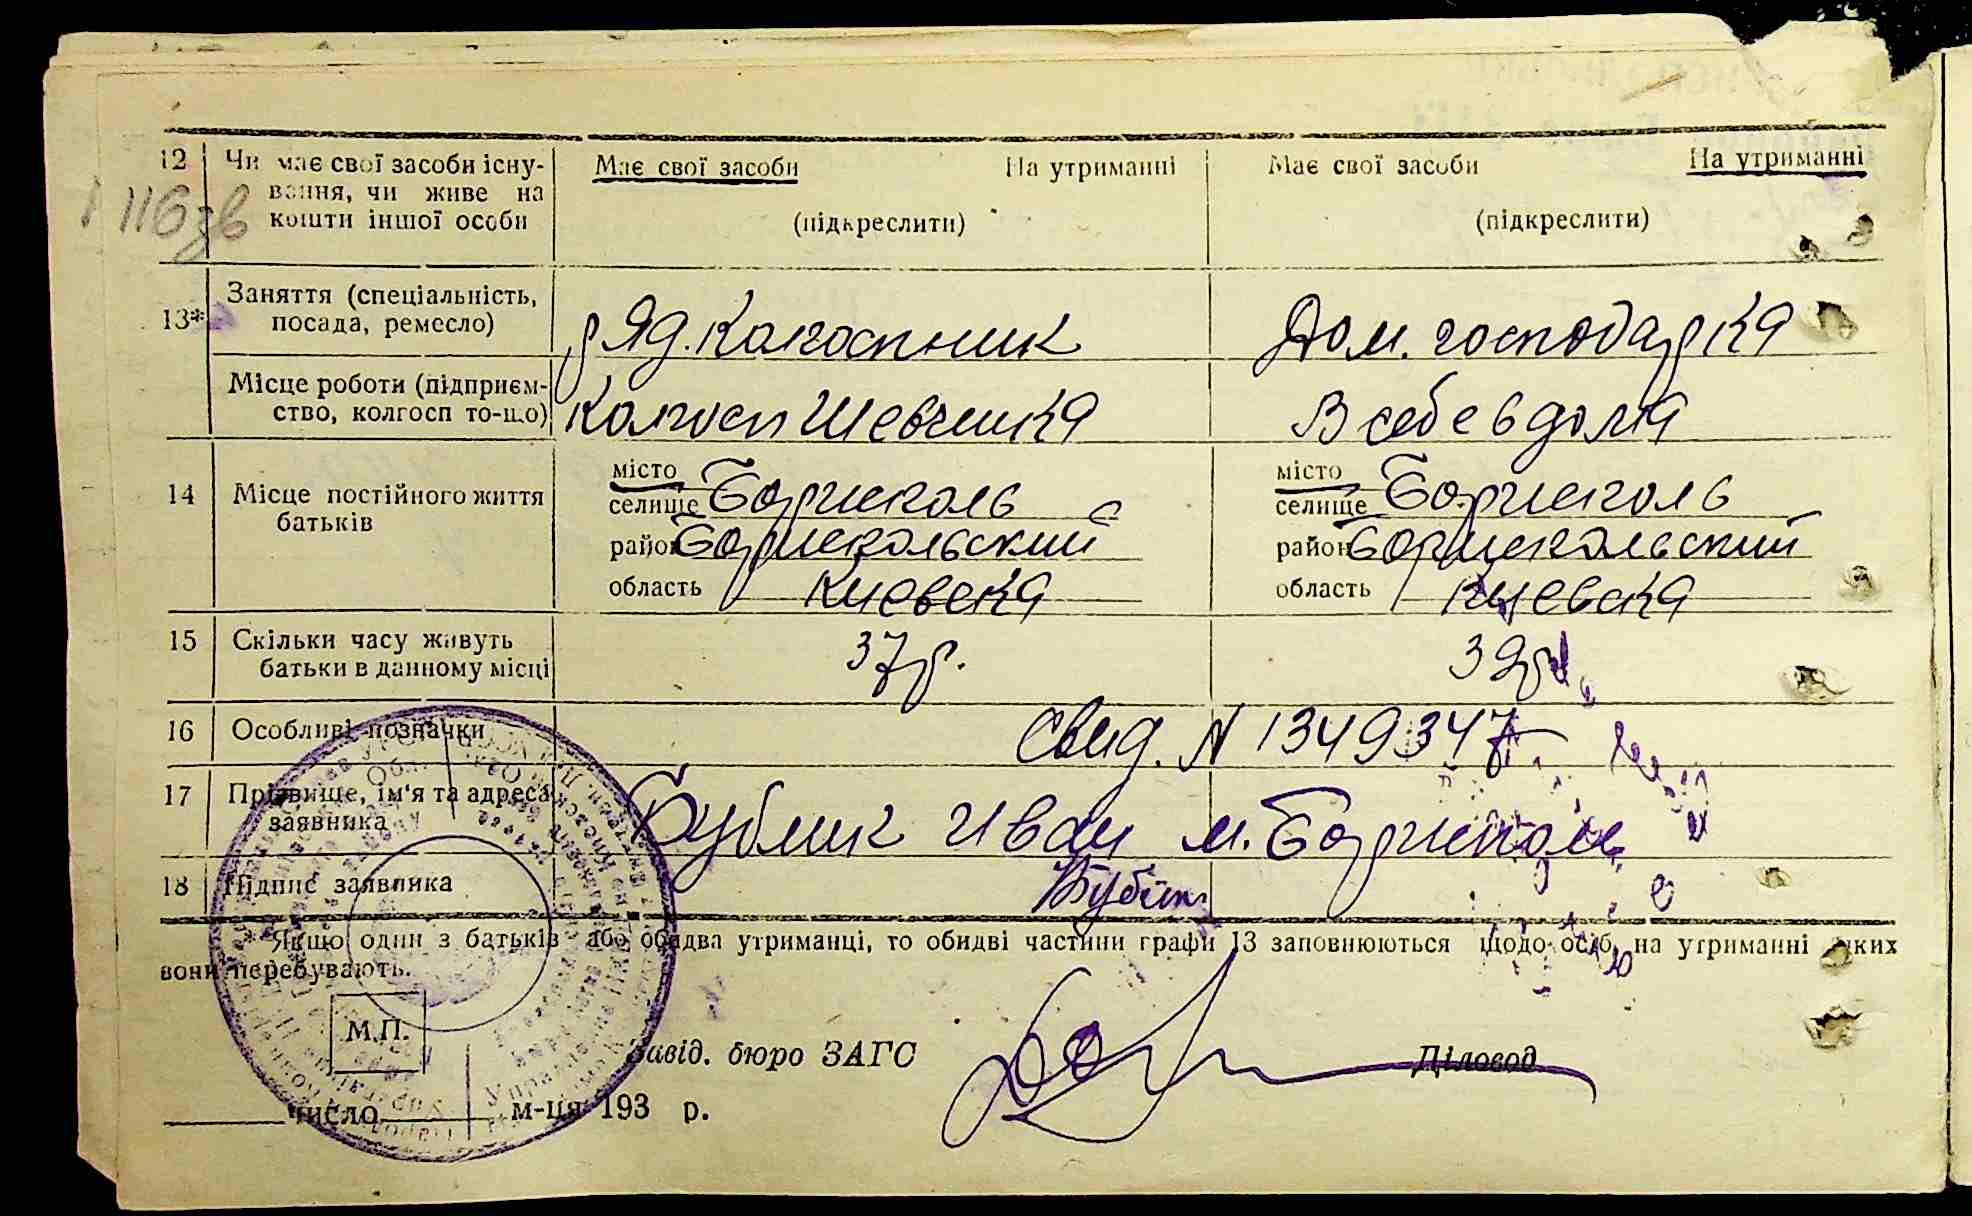 12 Чи має свої засоби існу- Має свої засоби На утриманні Має свої засоби На утриманні
116зв вання, чи живе на
кошти іншої особи (підкреслити) (підкреслити)
13* Заняття (спеціальність, посада, ремесло) ряд. колгоспник Дом. господарка
Місце роботи (підприєм-ство, колгосп то-що) Колгосп Шевченка В себе вдома
14 Місце постійного життя батьків місто селище Борисполь місто селище Борисполь
район Бориспольский район Бориспольский
область Киевска область Киевска
15 Скільки часу живуть батьки в данному місці 37 р. 32 р.
16 Особливі позначки Свид. N 1349347
17 Прізвище, ім'я та адреса заявника Бублик Иван м. Борисполь
18 Підпис заявника Бублик
* Якщо один з батьків або обидва утриманці, то обидві частини графи 13 заповнюються щодо осіб, на утриманні яких
вони перебувають.
М.П.
Завід. бюро ЗАГС Діловод
число м-ця 193 р.